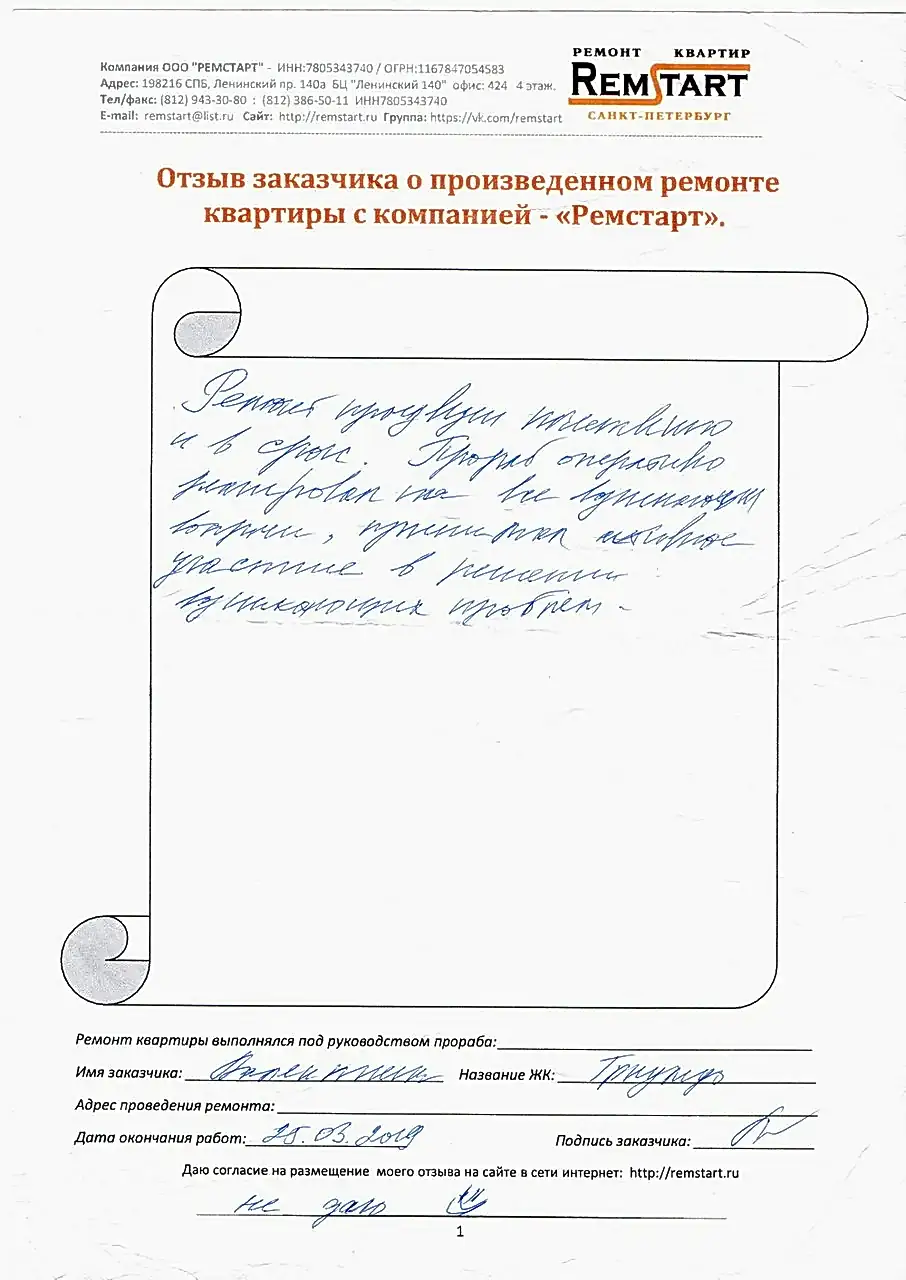 Компания ООО "РЕМСТАРТ" - ИНН:7805343740 / ОГРН:1167847054583
Адрес: 198216 СПБ, Ленинский пр. 140а БЦ "Ленинский 140" офис: 424 4 этаж.
Тел/факс: (812) 943-30-80 : (812) 386-50-11 ИНН7805343740
E-mail: remstart@list.ru Сайт: http://remstart.ru Группа: https://vk.com/remstart
РЕМОНТ КВАРТИР
REMSTART
САНКТ-ПЕТЕРБУРГ
Отзыв заказчика о произведенном ремонте
квартиры с компанией - «Ремстарт».
Ремонт произведен качественно
и в срок. Прораб оперативно
реагировал на все возникающие
вопросы, принимал активное
участие в решении
возникающих проблем.
Ремонт квартиры выполнялся под руководством прораба:
Имя заказчика: Валентина Название ЖК: Триумф
Адрес проведения ремонта:
Дата окончания работ: 25.03.2019 Подпись заказчика:
Даю согласие на размещение моего отзыва на сайте в сети интернет: http://remstart.ru
не даю
1